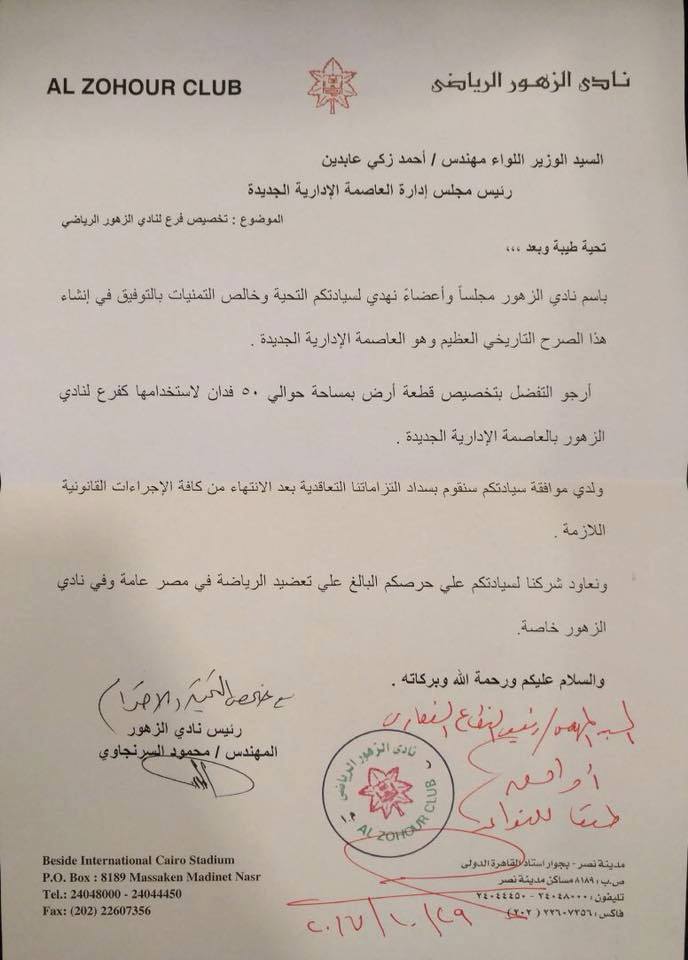 AL ZOHOUR CLUB
نادى الزهور الرياضى
السيد الوزير اللواء مهندس / أحمد زكي عابدين
رئيس مجلس إدارة العاصمة الإدارية الجديدة
الموضوع : تخصيص فرع لنادي الزهور الرياضي
تحية طيبة وبعد ،،،
باسم نادي الزهور مجلساً وأعضاءً نهدي لسيادتكم التحية وخالص التمنيات بالتوفيق في إنشاء
هذا الصرح التاريخي العظيم وهو العاصمة الإدارية الجديدة .
أرجو التفضل بتخصيص قطعة أرض بمساحة حوالي ٥٠ فدان لاستخدامها كفرع لنادي
الزهور بالعاصمة الإدارية الجديدة .
ولدي موافقة سيادتكم سنقوم بسداد التزاماتنا التعاقدية بعد الانتهاء من كافة الإجراءات القانونية
اللازمة .
ونعاود شركنا لسيادتكم علي حرصكم البالغ علي تعضيد الرياضة في مصر عامة وفي نادي
الزهور خاصة.
والسلام عليكم ورحمة الله وبركاته .
مع خالص التحية والاحترام
رئيس نادي الزهور
المهندس / محمود السرنجاوي
السيد المهندس / رئيس القطاع العقارى
أوافق
طبقا للقواعد
٢٠١٧/١٠/٢٩
نادى الزهور الرياضى
AL ZOHOUR CLUB
Beside International Cairo Stadium
P.O. Box : 8189 Massaken Madinet Nasr
Tel.: 24048000 - 24044450
Fax: (202) 22607356
مدينة نصر - بجوار استاد القاهرة الدولى
ص.ب : ٨١٨٩ مساكن مدينة نصر
تليفون : ٢٤٠٤٨٠٠٠ - ٢٤٠٤٤٤٥٠
فاكس : ٢٢٦٠٧٣٥٦ ( ٢٠٢ )